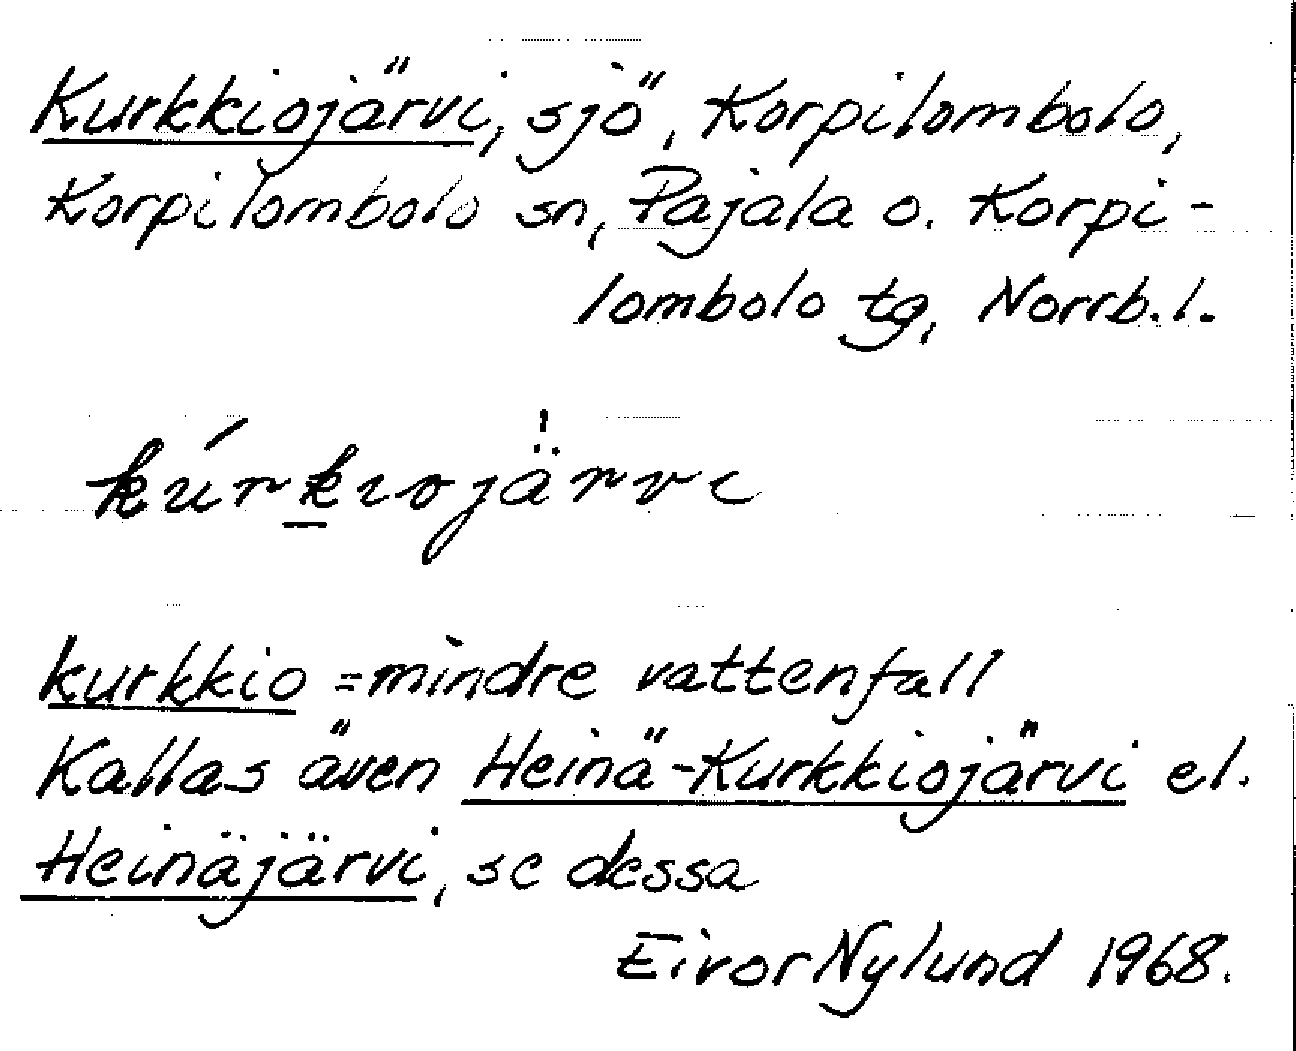 Kurkkiojärvi, sjö, Korpilombolo,
Korpilombolo sn, Pajala o. Korpi-
lombolo tg, Norrb.l.
kúrkıojärvı
kurkkio = mindre vattenfall
Kallas även Heinä-Kurkkiojärvi el.
Heinäjärvi, se dessa
Eivor Nylund 1968.